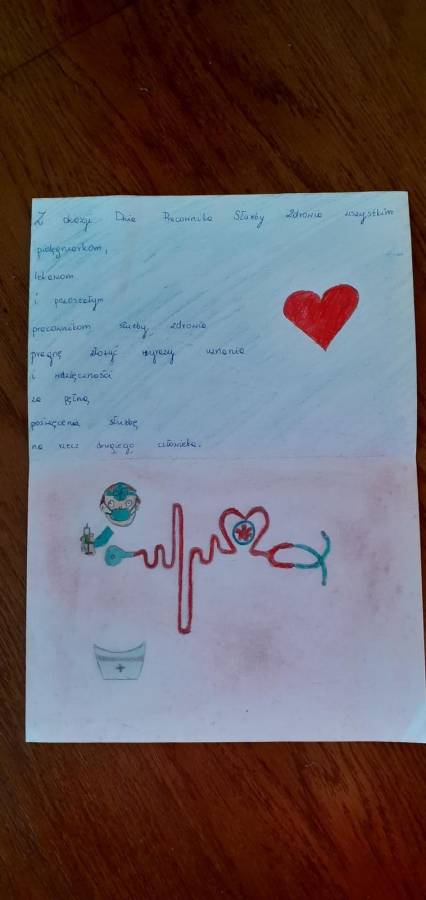 Z okazji Dnia Pracownika Służby Zdrowia wszystkim
pielęgniarkom,
lekarzom
i pozostałym
pracownikom służby zdrowia
pragnę złożyć wyrazy uznania
i wdzięczności
za pełną
poświęcenia służbę
na rzecz drugiego człowieka.